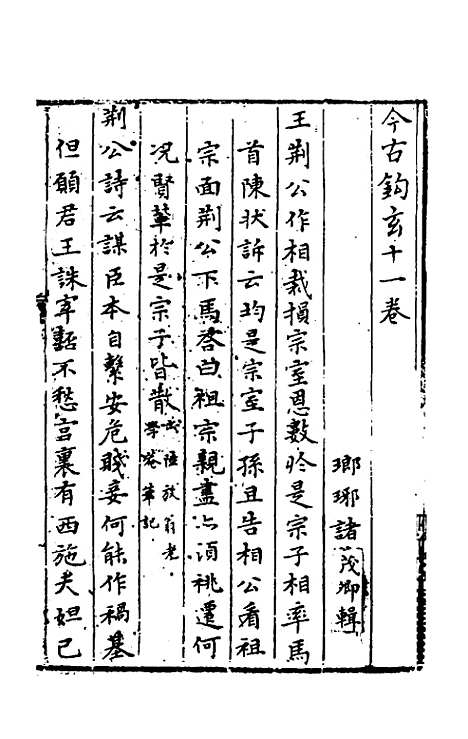 今古鈎玄十一卷
瑯琊諸茂卿輯
王荆公作相裁損宗室恩數於是宗子相率馬
首陳狀訴云均是宗室子孫且告相公看祖
宗面荆公下馬答曰祖宗親盡亦須祧遷何
況賢輩於是宗子皆散 陸放翁老學菴筆記
荆公詩云謀臣本自繫安危賤妾何能作禍基
但願君王誅宰嚭不愁宮裏有西施夫妲己